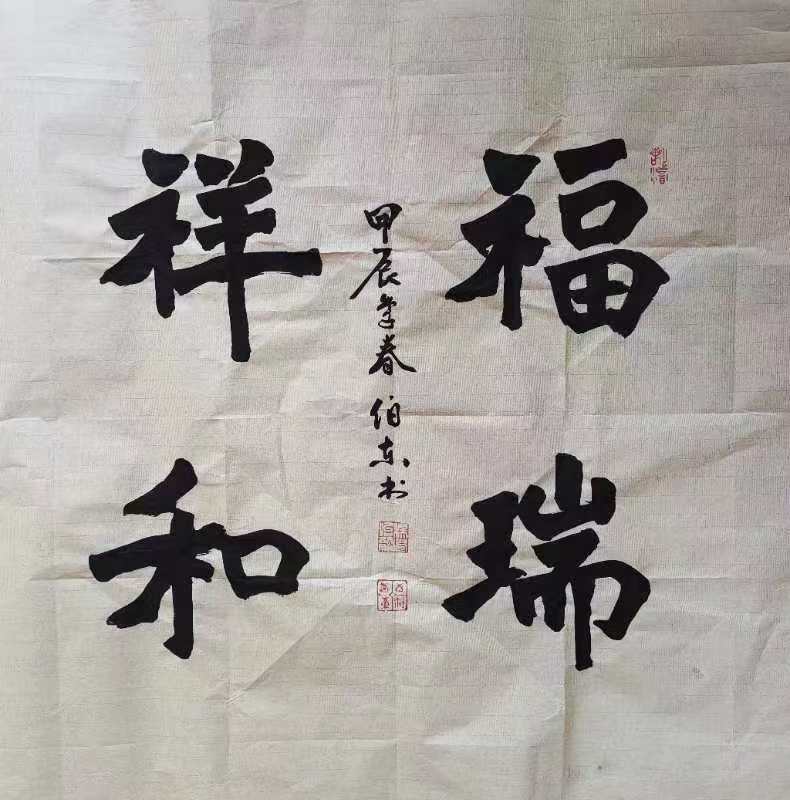 福瑞
祥和
甲辰季春伯东书